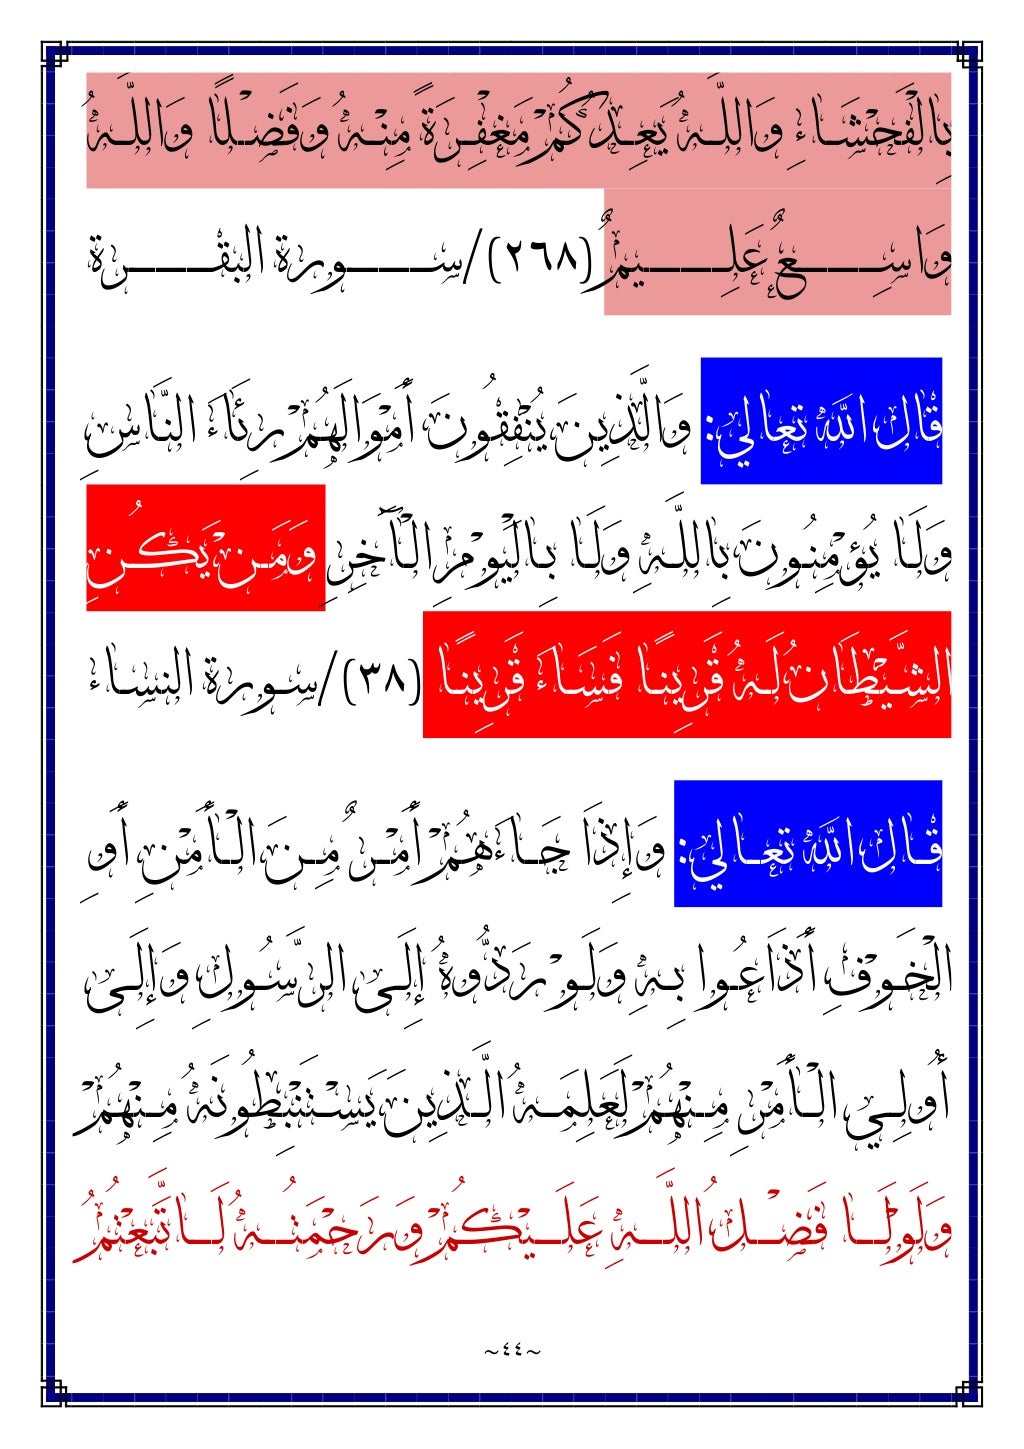 بِالْفَحْشَاءِ وَاللَّهُ يَعِدُكُمْ مَغْفِرَةً مِنْهُ وَفَضْلًا وَاللَّهُ
وَاسِعٌ عَلِيمٌ (٢٦٨)/سورة البقرة
قال الله تعالي: وَالَّذِينَ يُنْفِقُونَ أَمْوَالَهُمْ رِئَاءَ النَّاسِ
وَلَا يُؤْمِنُونَ بِاللَّهِ وَلَا بِالْيَوْمِ الْآَخِرِ وَمَنْ يَكُنِ
الشَّيْطَانُ لَهُ قَرِينًا فَسَاءَ قَرِينًا (٣٨)/سورة النساء
قال الله تعالي: وَإِذَا جَاءَهُمْ أَمْرٌ مِنَ الْأَمْنِ أَوِ
الْخَوْفِ أَذَاعُوا بِهِ وَلَوْ رَدُّوهُ إِلَى الرَّسُولِ وَإِلَى
أُولِي الْأَمْرِ مِنْهُمْ لَعَلِمَهُ الَّذِينَ يَسْتَنْبِطُونَهُ مِنْهُمْ
وَلَوْلَا فَضْلُ اللَّهِ عَلَيْكُمْ وَرَحْمَتُهُ لَاتَّبَعْتُمُ
~٤٤~